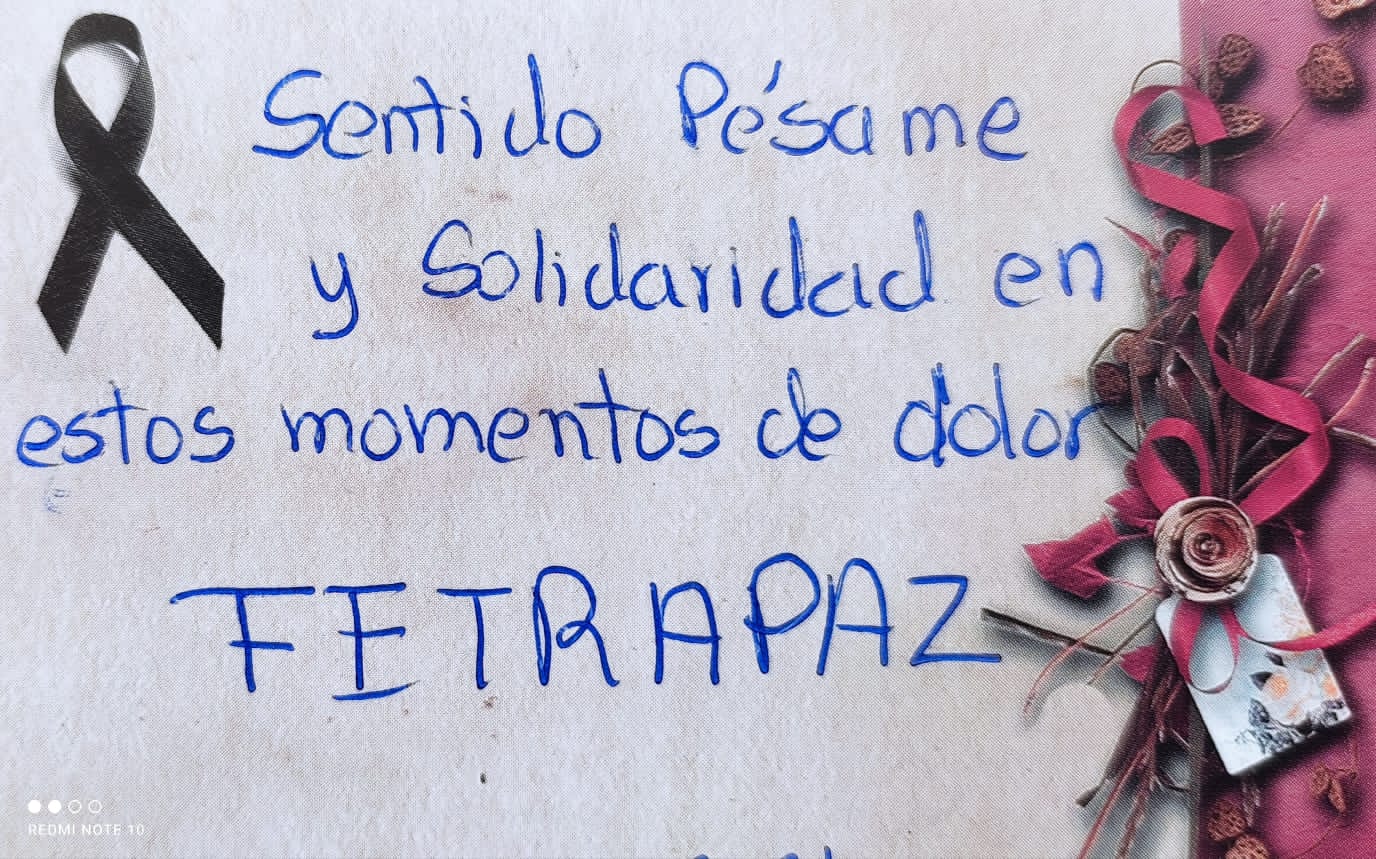 Sentido Pésame
y Solidaridad en
estos momentos de dolor
FETRAPAZ
REDMI NOTE 10